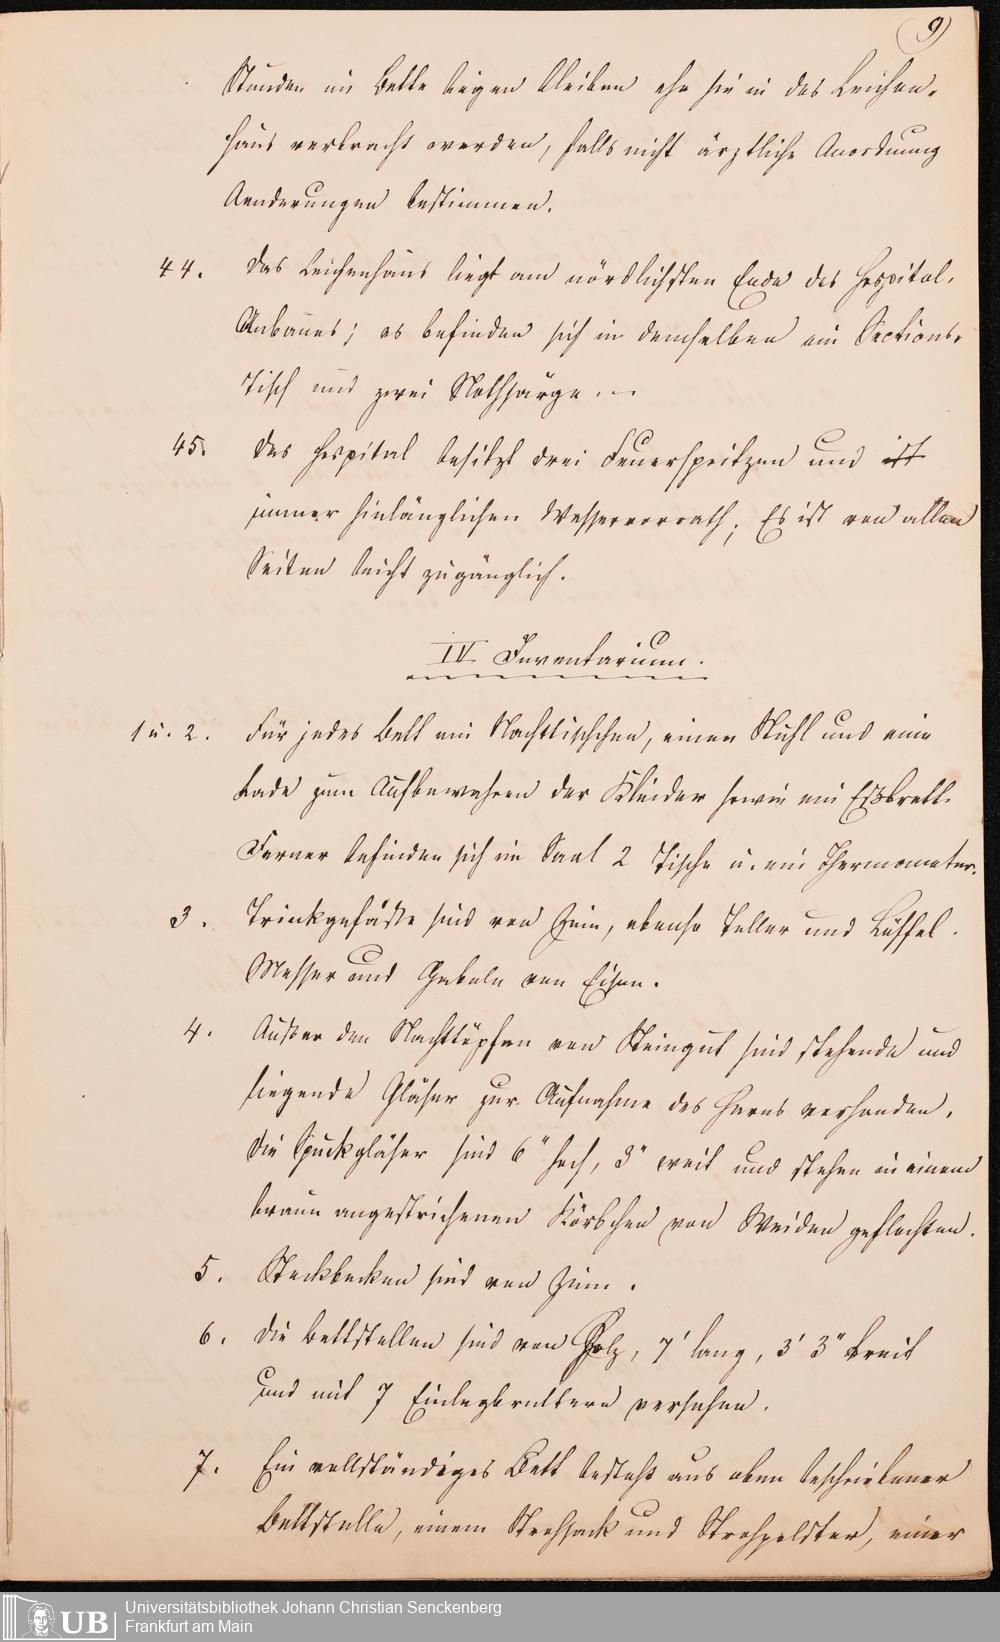 9
Stunden im Bette liegen bleiben ehe sie in das Leichen-
haus verbracht werden, falls nicht ärztliche Anordnung
Aenderungen bestimmen.
44. Das Leichenhaus liegt am nördlichsten Ende des Hospital-
Anbaues; es befinden sich in demselben ein Sections-
Tisch und zwei Nothsärge. –
45. Das Hospital besitzt drei Feuerspritzen und ist
immer hinlänglichen Wasservorrath; Es ist von allen
Seiten leicht zugänglich.
IV Inventarium.
1 u. 2. Für jedes Bett ein Nachttischchen, einen Stuhl und eine
Lade zum Aufbewahren der Kleider sowie ein Eßbrett.
Ferner befinden sich im Saal 2 Tische u. ein Thermometer.
3. Trinkgefäße sind von Zinn, ebenso Teller und Löffel.
Messer und Gabeln von Eisen.
4. Außer den Nachttöpfen von Steingut sind stehende und
liegende Gläser zur Aufnahme des Harns vorhanden.
Die Spuckgläser sind 6" hoch, 3" weit und stehen in einem
braun angestrichenen Körbchen von Weiden geflochten.
5. Steckbecken sind von Zinn.
6. Die Bettstellen sind von Holz, 7' lang, 3' 3" breit
und mit 7 Einlegbrettern versehen.
7. Ein vollständiges Bett besteht aus oben beschriebener
Bettstelle, einem Strohsack und Strohpolster, einer
UB Universitätsbibliothek Johann Christian Senckenberg
Frankfurt am Main